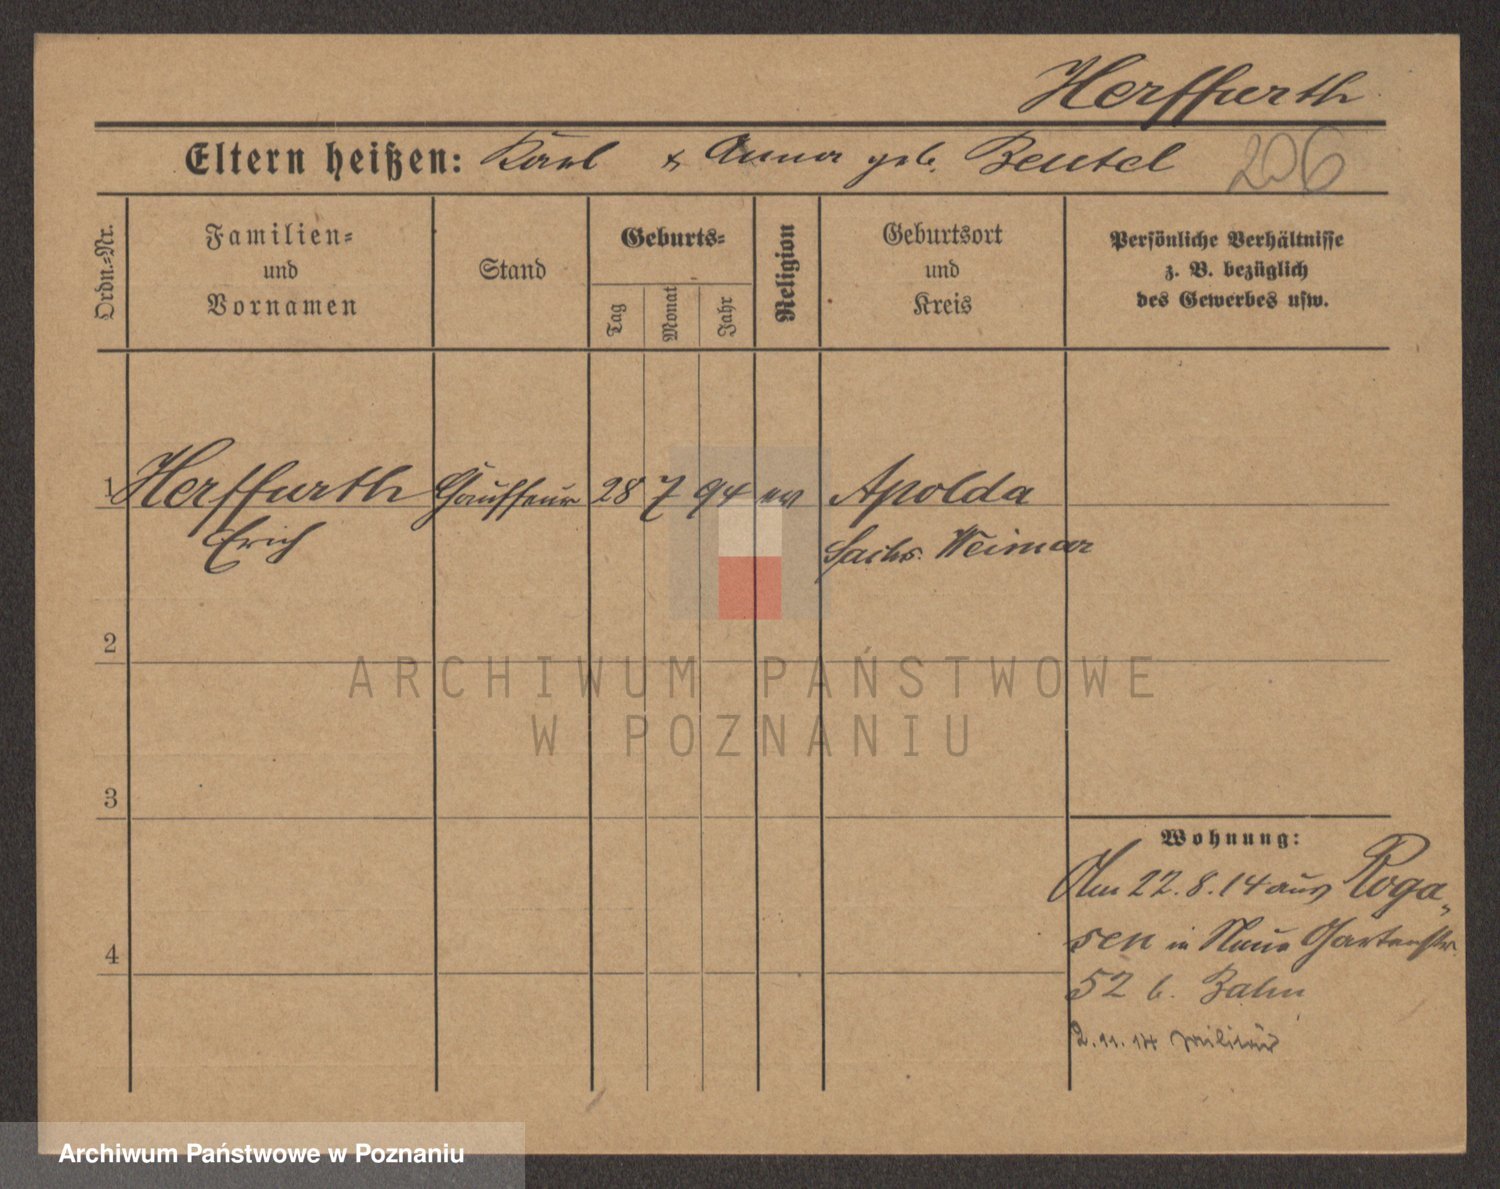 Herffurth
Eltern heißen: Karl & Anna geb. Beutel 206
Ordn.=Nr.
Familien=
und
Vornamen
Stand
Geburts=
Tag
Monat
Jahr
Religion
Geburtsort
und
Kreis
Persönliche Verhältnisse
z. B. bezüglich
des Gewerbes usw.
1 Herffurth Chauffeur 28 7 94 ev Apolda
Erich Sachs. Weimar
2
ARCHIWUM PAŃSTWOWE
W POZNANIU
3
Wohnung:
Am 22.8.14 aus Roga-
4 sen in Neue Gartenstr.
52 b. Bahn
2.11.14 Militär
Archiwum Państwowe w Poznaniu